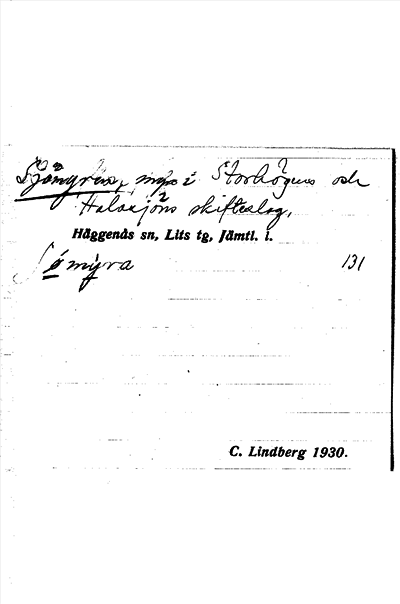 Sjömyran, myr i Storhögens och
Halasjöns skifteslag,
Häggenås sn, Lits tg, Jämtl. l.
Sömyra 131
C. Lindberg 1930.